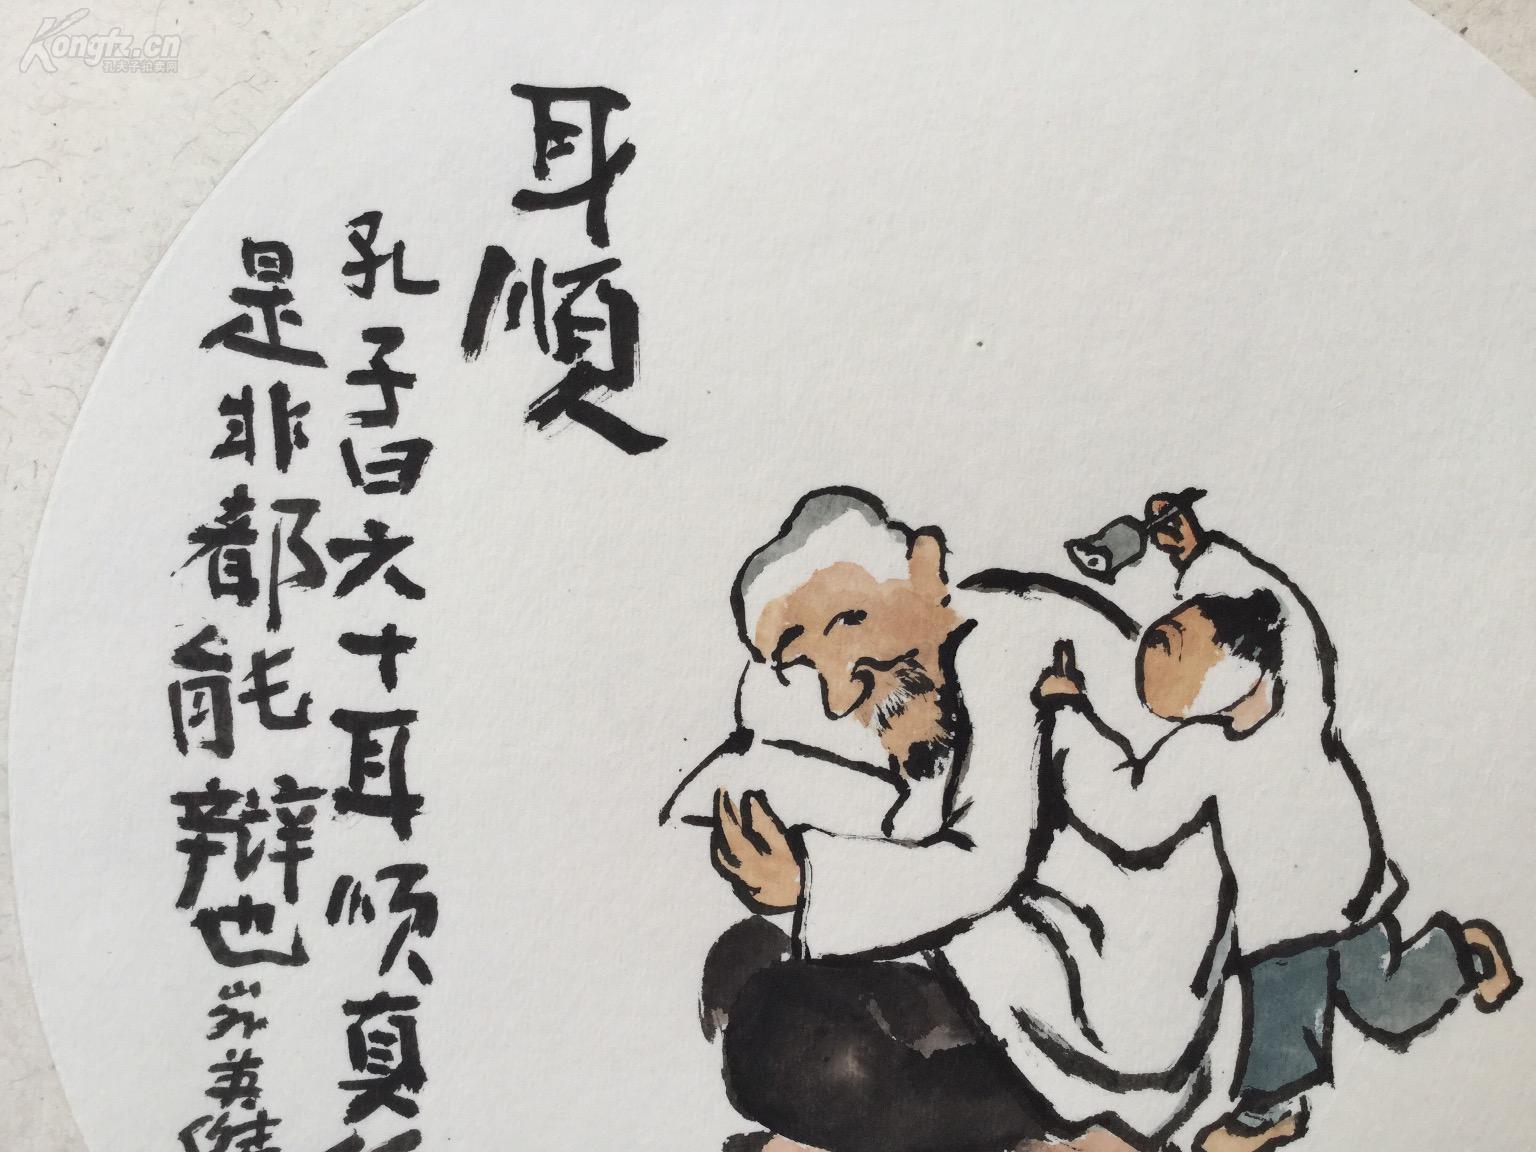 Kongfz.cn
孔夫子拍卖网
耳順
孔子曰六十耳顺真
是非都能辩也
英傑